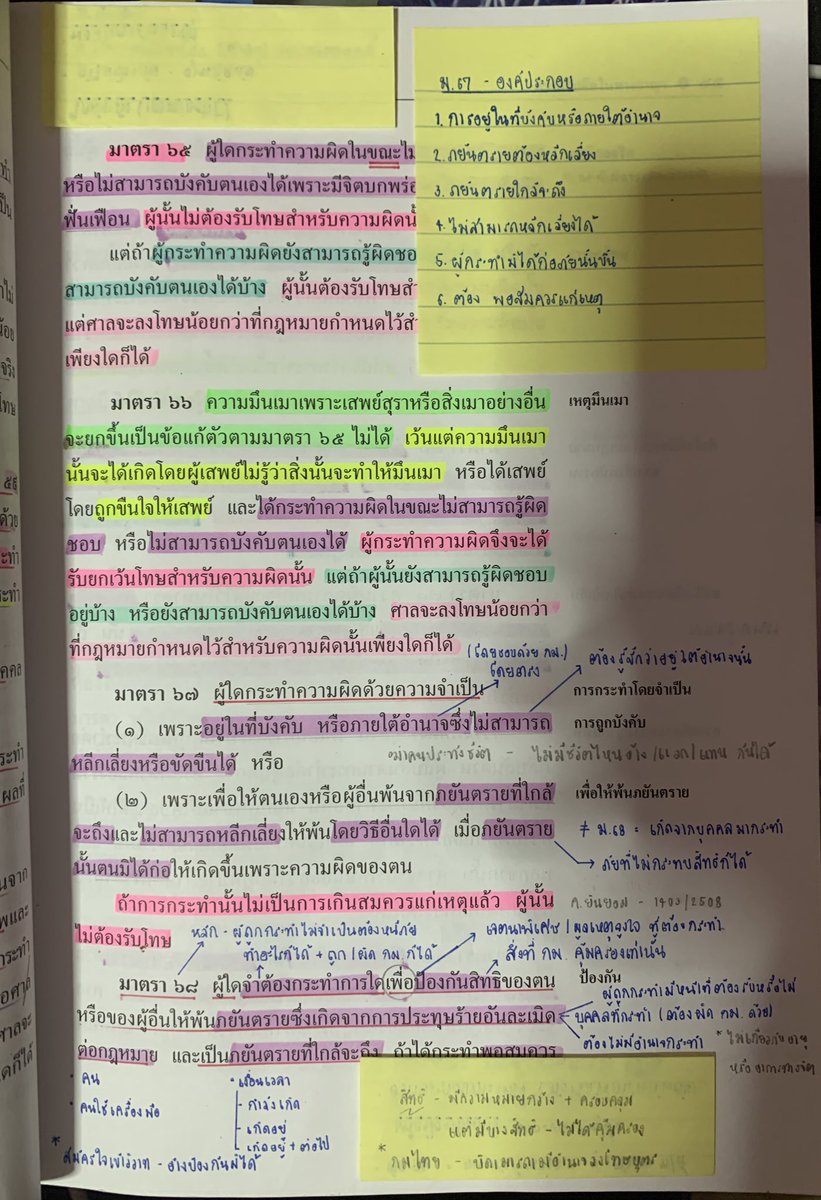 ม.๖๗ - องค์ประกอบ
1. การอยู่ในที่บังคับหรือภายใต้อำนาจ
2. ภยันตรายต้องหลีกเลี่ยง
3. ภยันตรายใกล้จะถึง
4. ไม่สามารถหลีกเลี่ยงได้
5. ผู้กระทำมิได้ก่อภัยนั้นขึ้น
6. ต้อง พอสมควรแก่เหตุ
มาตรา ๖๕ ผู้ใดกระทำความผิดในขณะไม่
หรือไม่สามารถบังคับตนเองได้เพราะมีจิตบกพร่อ
ฟั่นเฟือน ผู้นั้นไม่ต้องรับโทษสำหรับความผิดนั้
แต่ถ้าผู้กระทำความผิดยังสามารถรู้ผิดชอ
สามารถบังคับตนเองได้บ้าง ผู้นั้นต้องรับโทษสำ
แต่ศาลจะลงโทษน้อยกว่าที่กฎหมายกำหนดไว้สำ
เพียงใดก็ได้
มาตรา ๖๖ ความมึนเมาเพราะเสพย์สุราหรือสิ่งเมาอย่างอื่น เหตุมึนเมา
จะยกขึ้นเป็นข้อแก้ตัวตามมาตรา ๖๕ ไม่ได้ เว้นแต่ความมึนเมา
นั้นจะได้เกิดโดยผู้เสพย์ไม่รู้ว่าสิ่งนั้นจะทำให้มึนเมา หรือได้เสพย์
โดยถูกขืนใจให้เสพย์ และได้กระทำความผิดในขณะไม่สามารถรู้ผิด
ชอบ หรือไม่สามารถบังคับตนเองได้ ผู้กระทำความผิดจึงจะได้
รับยกเว้นโทษสำหรับความผิดนั้น แต่ถ้าผู้นั้นยังสามารถรู้ผิดชอบ
อยู่บ้าง หรือยังสามารถบังคับตนเองได้บ้าง ศาลจะลงโทษน้อยกว่า
ที่กฎหมายกำหนดไว้สำหรับความผิดนั้นเพียงใดก็ได้
(โดยชอบด้วย กม.) ต้องรู้จักว่าอยู่ใต้อำนาจนั้น
โดยตรง
มาตรา ๖๗ ผู้ใดกระทำความผิดด้วยความจำเป็น การกระทำโดยจำเป็น
(๑) เพราะอยู่ในที่บังคับ หรือภายใต้อำนาจซึ่งไม่สามารถ การถูกบังคับ
หลีกเลี่ยงหรือขัดขืนได้ หรือ
(๒) เพราะเพื่อให้ตนเองหรือผู้อื่นพ้นจากภยันตรายที่ใกล้ เพื่อให้พ้นภยันตราย
จะถึงและไม่สามารถหลีกเลี่ยงให้พ้นโดยวิธีอื่นใดได้ เมื่อภยันตราย ≠ ม.๖๘ = เกิดจากบุคคลมากระทำ
นั้นตนมิได้ก่อให้เกิดขึ้นเพราะความผิดของตน ภัยที่ไม่กระทบสิทธิก็ได้
ถ้าการกระทำนั้นไม่เป็นการเกินสมควรแก่เหตุแล้ว ผู้นั้น
ไม่ต้องรับโทษ
หลัก - ผู้ถูกกระทำไม่จำเป็นต้องหนีภัย
ทำอะไรก็ได้ + ถูก / ผิด กม. ก็ได้
เจตนาพิเศษ / มูลเหตุจูงใจ ที่ต้องกระทำ
สิ่งที่ กม. คุ้มครองเท่านั้น
มาตรา ๖๘ ผู้ใดจำต้องกระทำการใดเพื่อป้องกันสิทธิของตน ป้องกัน
หรือของผู้อื่นให้พ้นภยันตรายซึ่งเกิดจากการประทุษร้ายอันละเมิด
ต่อกฎหมาย และเป็นภยันตรายที่ใกล้จะถึง ถ้าได้กระทำพอสมควร
ผู้ถูกกระทำมีหน้าที่ต้องรับหรือไม่
บุคคลที่กระทำ (ต้องผิด กม. ด้วย)
ต้องไม่มีอำนาจกระทำ
• คน
• คนใช้เครื่องมือ
• เงื่อนเวลา
กำลังเกิด
เกิดอยู่
เกิดอยู่ + ต่อไป
* สมัครใจเข้าวิวาท - อ้างป้องกันมิได้
สิทธิ - มีความหมายกว้าง + ครอบคลุม
แต่มีบางสิทธิ - ไม่ได้คุ้มครอง
* กม.ไทย - บิดามารดามีอำนาจลงโทษบุตร